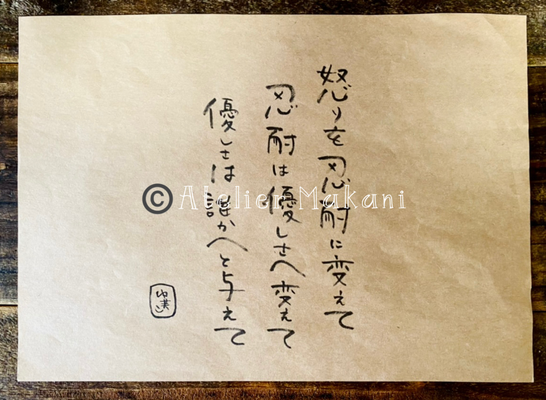 怒りを忍耐に変えて
忍耐は優しさへ変えて
優しさは誰かへと与えて
© Atelier Makani